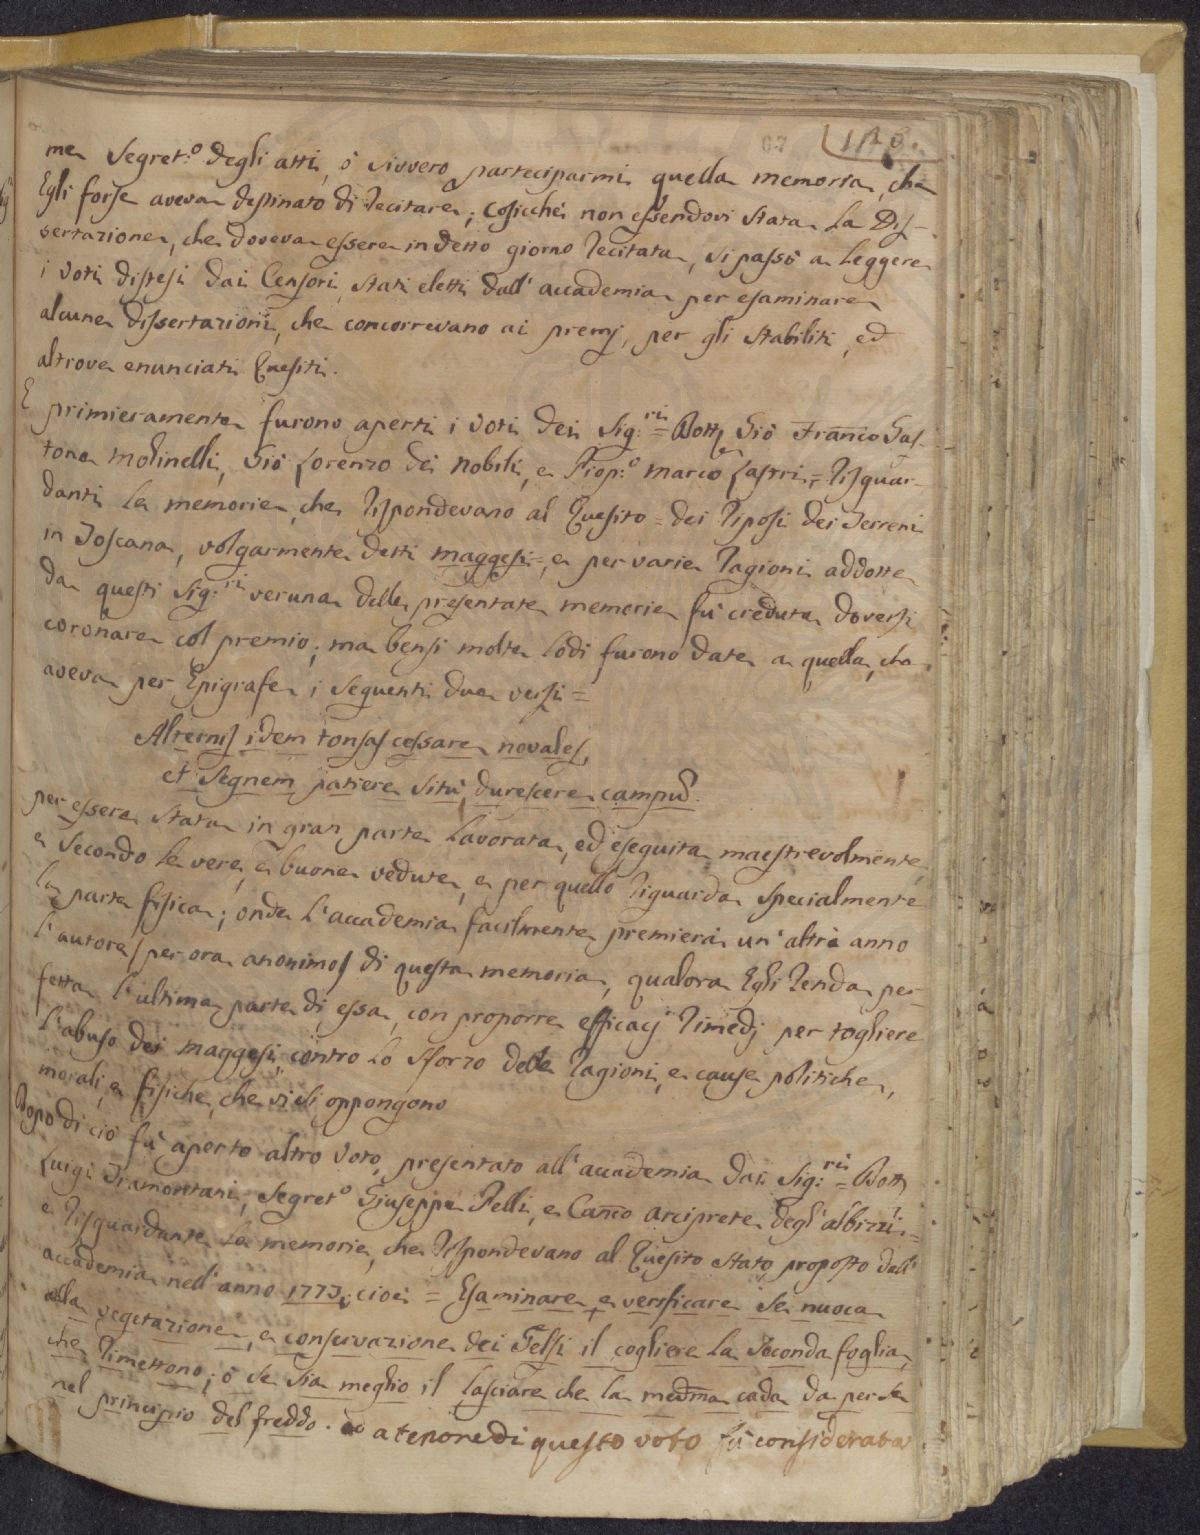 118.
me Segret:o degli atti, ò sivvero parteciparmi quella memoria, che
Egli forse aveva destinato di recitare; cosicchè non essendovi stata la Dis-
sertazione, che doveva essere in detto giorno recitata, si passò a leggere
i voti distesi dai Censori, stati eletti dall'accademia per esaminare
alcune dissertazioni, che concorrevano ai premj, per gli stabiliti, ed
altrove enunciati Quesiti.
E primieramente furono aperti i voti dei Sig:ri = Dott Giò Franco Gas-
tone Molinelli, Giò Lorenzo dei Nobili, e Prop:o Marco Lastri = risguar-
danti le memorie, che rispondevano al Quesito = dei riposi dei Terreni
in Toscana, volgarmente detti maggesi =, e per varie ragioni addotte
da questi Sig:ri veruna delle presentate memorie fù creduta doversi
coronare col premio; ma bensi molte lodi furono date a quella, che
aveva per Epigrafe i seguenti due versi =
Alternis idem tonsas cessare novales,
et segnem patiere situ durescere campũ.
per essere stata in gran parte lavorata, ed eseguita maestrevolmente,
e secondo le vere, e buone vedute, e per quello riguarda specialmente
la parte fisica; onde l'accademia facilmente premierà un'altro anno
l'autore (per ora anonimo) di questa memoria, qualora Egli renda per-
fetta l'ultima parte di essa, con proporre efficacj rimedj per togliere
l'abuso dei maggesi, contro lo sforzo delle ragioni, e cause politiche,
morali, e fisiche, che vi si oppongono
Dopo di ciò fù aperto altro voto, presentato all'accademia dai Sig:ri = Dott
Luigi Tramontani, Segreto Giuseppe Pelli, e Canco arciprete degl'albizzi =
e risguardante le memorie, che rispondevano al Quesito stato proposto dall'
accademia nell'anno 1773, cioè = Esaminare, e verificare se nuoca
alla vegetazione, e conservazione dei Gelsi il cogliere la seconda foglia,
che rimettono; ò se sia meglio il lasciare che la medma cada da per se
nel principio del freddo. ed a tenore di questo voto fù considerata